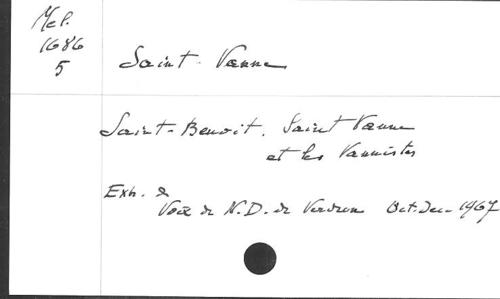 Mel.
1686
5
Saint-Vanne
Saint-Benoit, Saint Vanne
et les Vannistes
Ext. de
Voix de N.D. de Verdun Oct.Dec-1967